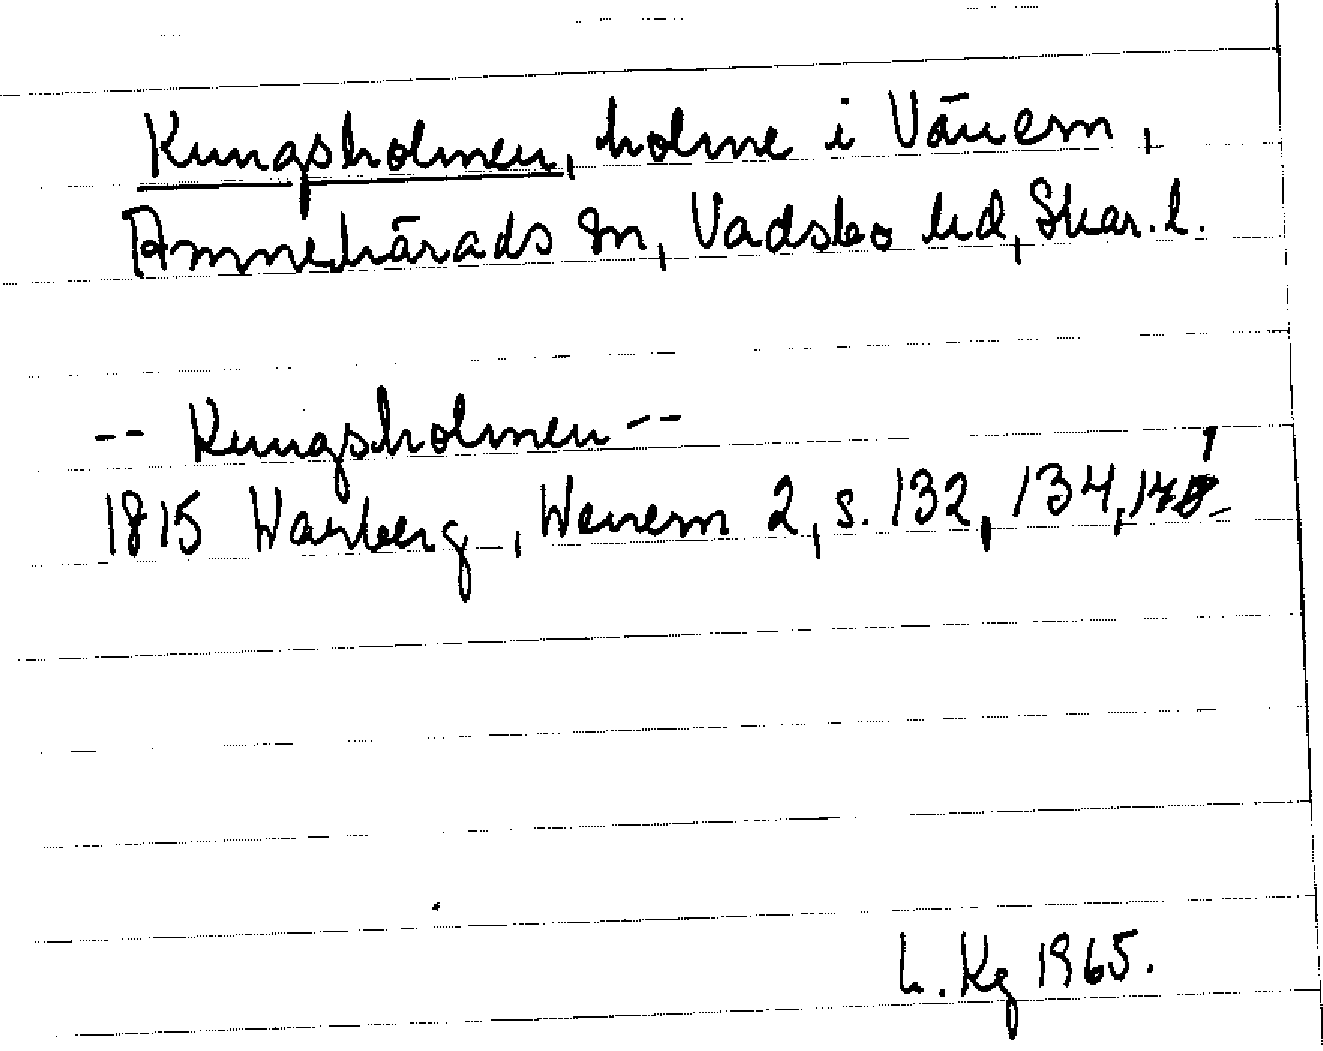 Kungsholmen, holme i Vänern,
Amnehärads sn, Vadsbo hd, Skar. l.
-- Kungsholmen --
1815 Warberg, Wenern 2, s. 132, 134,
L. Kg 1965.